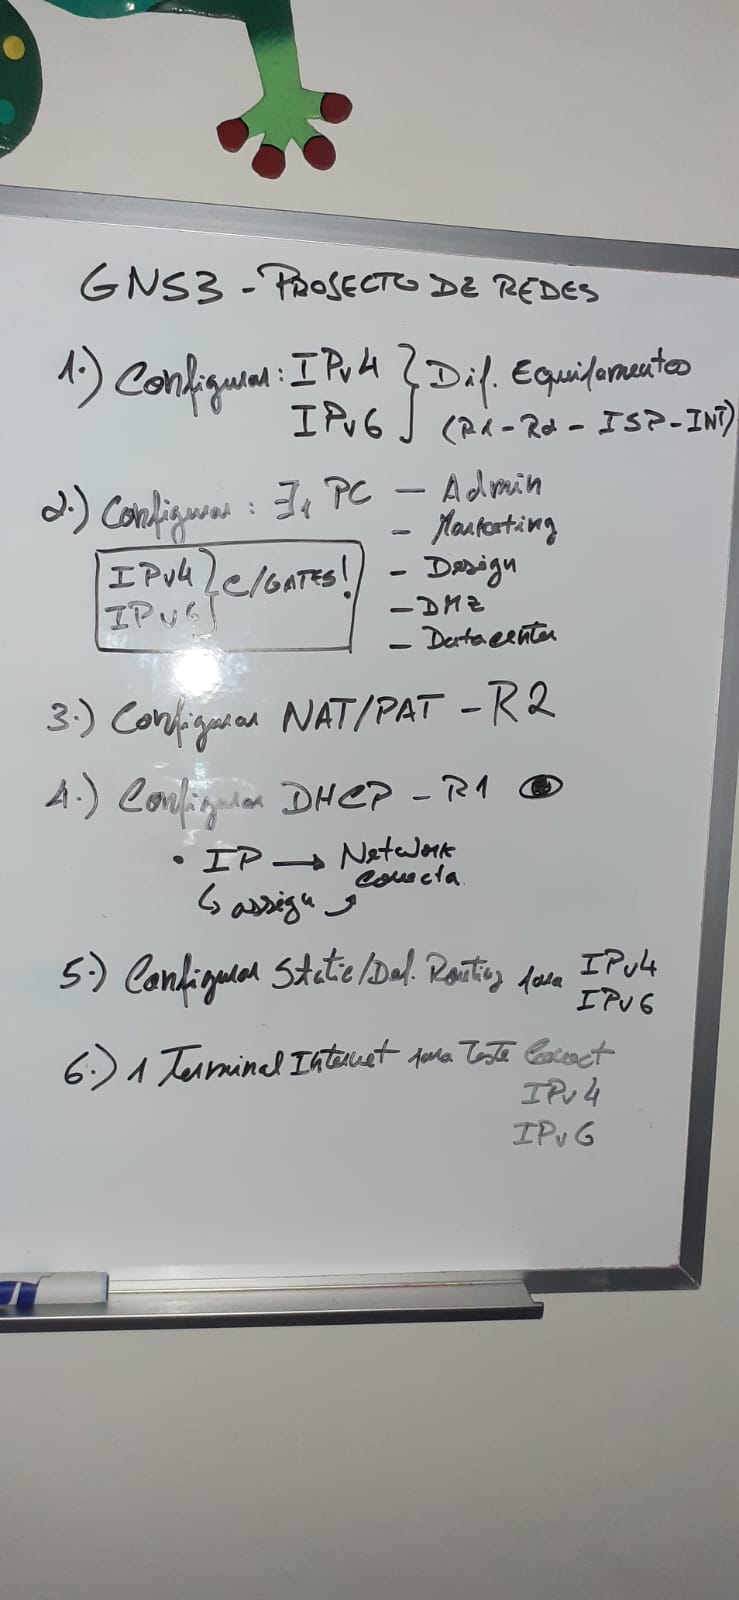 GNS3 - PROJECTO DE REDES
1.) Configurar: IPv4 } Dif. Equipamentos
IPv6 (R1-R2-ISP-INT)
2.) Configurar: ∃1 PC - Admin
- Marketing
IPv4 } c/GATES! - Design
IPv6 - DMZ
- Datacenter
3.) Configurar NAT/PAT - R2
4.) Configurar DHCP - R1
• IP → Network
conecta.
↳ assign
5.) Configurar Static/Def. Routing para IPv4
IPv6
6.) 1 Terminal Internet para Teste Conect
IPv4
IPv6